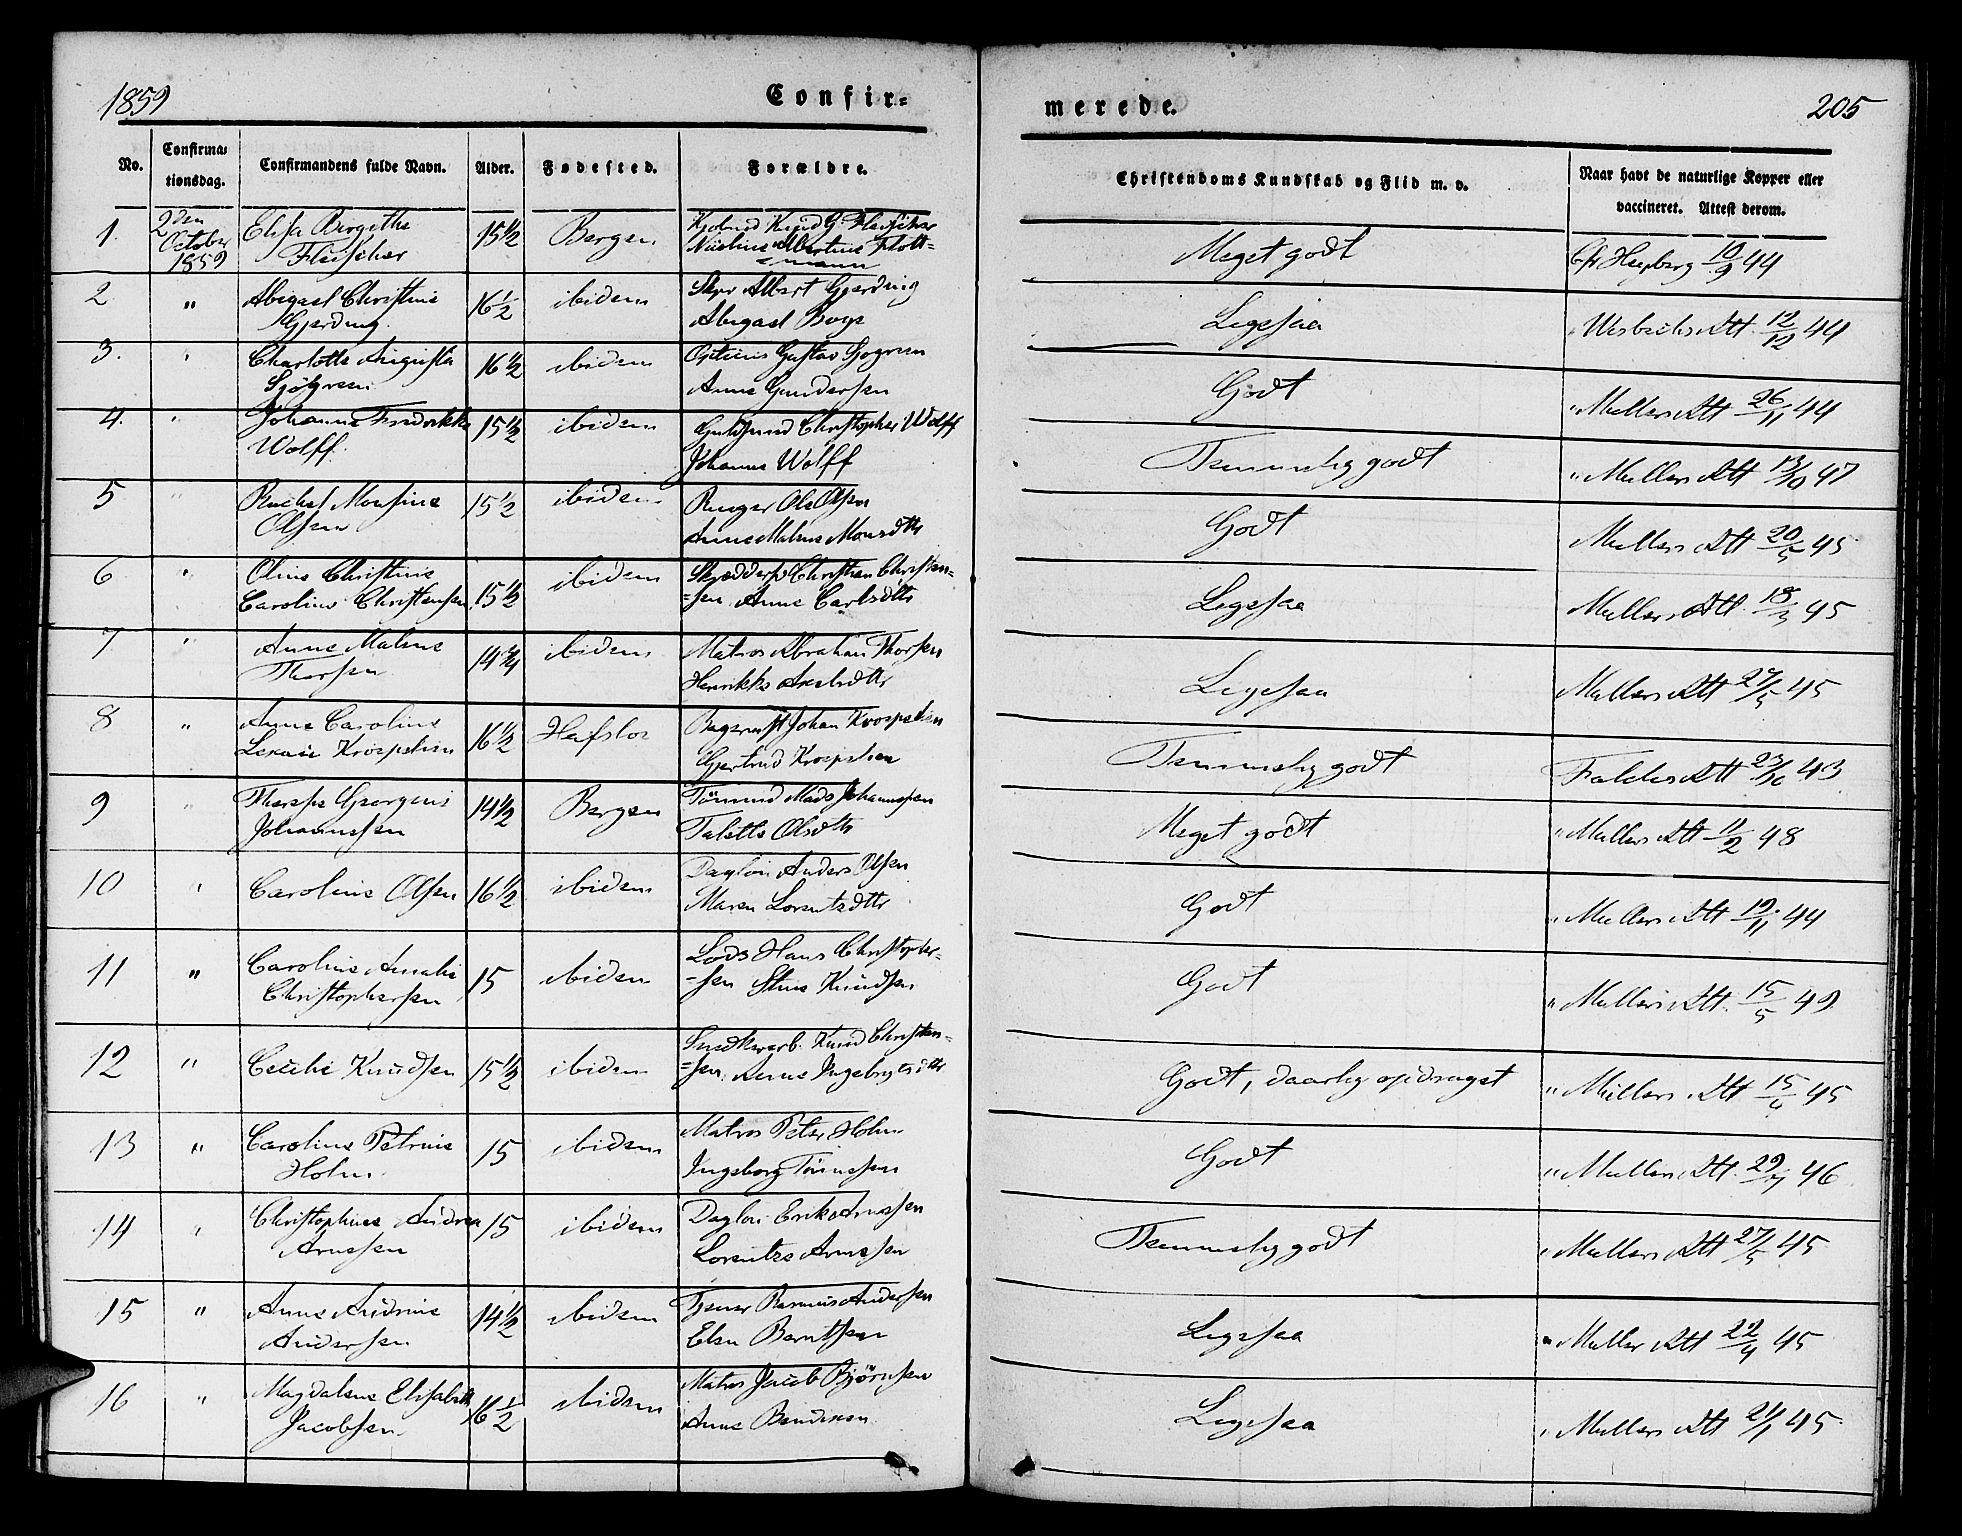 1859
Confir=
merede.
205
No.
Confirma=
tionsdag.
Confirmandens fulde Navn.
Alder.
Fødested.
Forældre.
Christendoms Kundskab og Flid m. v.
Naar havt de naturlige Kopper eller
vaccineret. Attest derom.
1.
2den
October
1859
Elisa Birgithe
Fleischer
15 1/2
Bergen
Knud G. Fleischer
Albertine Flott=
=mann
Meget godt
Heyberg 10/9 44
2
"
Abigael Christine
Gjerding
16 1/2
ibidem
Albert Gjerding
Abigael
Ligesaa
Att 12/12 44
3.
"
Charlotte Augusta
Sjögreen
16 1/2
ibidem
Gustav Sjögreen
Anne Gundersen
Godt
" Mullers Att 26/11 44
4.
"
Johanne Fredrikke
Wolff
15 1/2
ibidem
Christopher Wolff
Johanne Wolff
Temmelig godt
" Mullers Att 13/10 47
5
"
Rachel Monsine
Olsen
15 1/2
ibidem
Ole Olsen
Anne Malene Monsdtr
Godt
Mullers Att 20/5 45
6
"
Oline Christine
Caroline Christensen
15 1/2
ibidem
Christian Christen=
=sen Anne Carlsdtr
Ligesaa
Mullers Att 18/3 45
7
"
Anne Malene
Thorsen
14 3/4
ibidem
Matros Abraham Thorsen
Henrikke Axelsdtr
Ligesaa
Mullers Att 27/5 45
8
"
Anne Caroline
Kroepelien
16 1/2
Hafslo
Bagermst Johan Kroepelien
Gjertrud Kroepelien
Temmelig godt
Att 23/10 43
9
"
Georgine
Johannessen
14 1/2
Bergen
Mads Johannessen
Talette Olsdtr
Meget godt
" Mullers Att 11/2 48
10
"
Caroline Olsen
16 1/2
ibidem
Daglön Anders Olsen
Maren Lorentsdtr
Godt
" Mullers Att 19/11 44
11
"
Caroline Amalie
Christophersen
15
ibidem
Lods Hans Christopher=
=sen Stine Knudsen
Godt
" Mullers Att. 15/5 49
12
"
Cecilie Knudsen
15 1/2
ibidem
Knud Christen=
=sen. Anne Ingebrigtsdtr
Godt, daarlig opdraget
" Müllers Att 15/4 45
13
"
Caroline Petrine
Holm
15
ibidem
Matros Peter Holm
Ingeborg Tönnesen
Godt
" Mullers Att. 29/7 46
14
"
Christophine Andrea
Arnesen
15
ibidem
Daglön Erik Arnesen
Lorentze Arnesen
Temmelig godt
" Mullers Att 27/5 45
15
"
Anne Andrine
Andersen
14 1/2
ibidem
Tjener Rasmus Andersen
Elen Berntsen
Ligesaa
" Muller Att 22/4 45
16
"
Magdalene Elisabeth
Jacobsen
16 1/2
ibidem
Matros Jacob Björnsen
Anne
Ligesaa
" Mullers Att 21/1 45